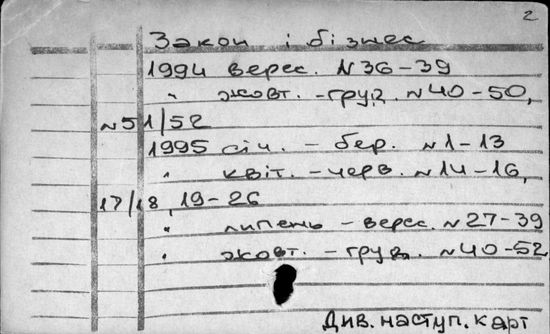 2
Закон і бізнес
1994 верес. N 36-39
" жовт. - груд. N 40-50,
N 51/52
1995 січ. - бер. N 1-13
" квіт. - черв. N 14-16,
17/18, 19-26
" липень - верес. N 27-39
" жовт. - груд. N 40-52
Див. наступ. карт